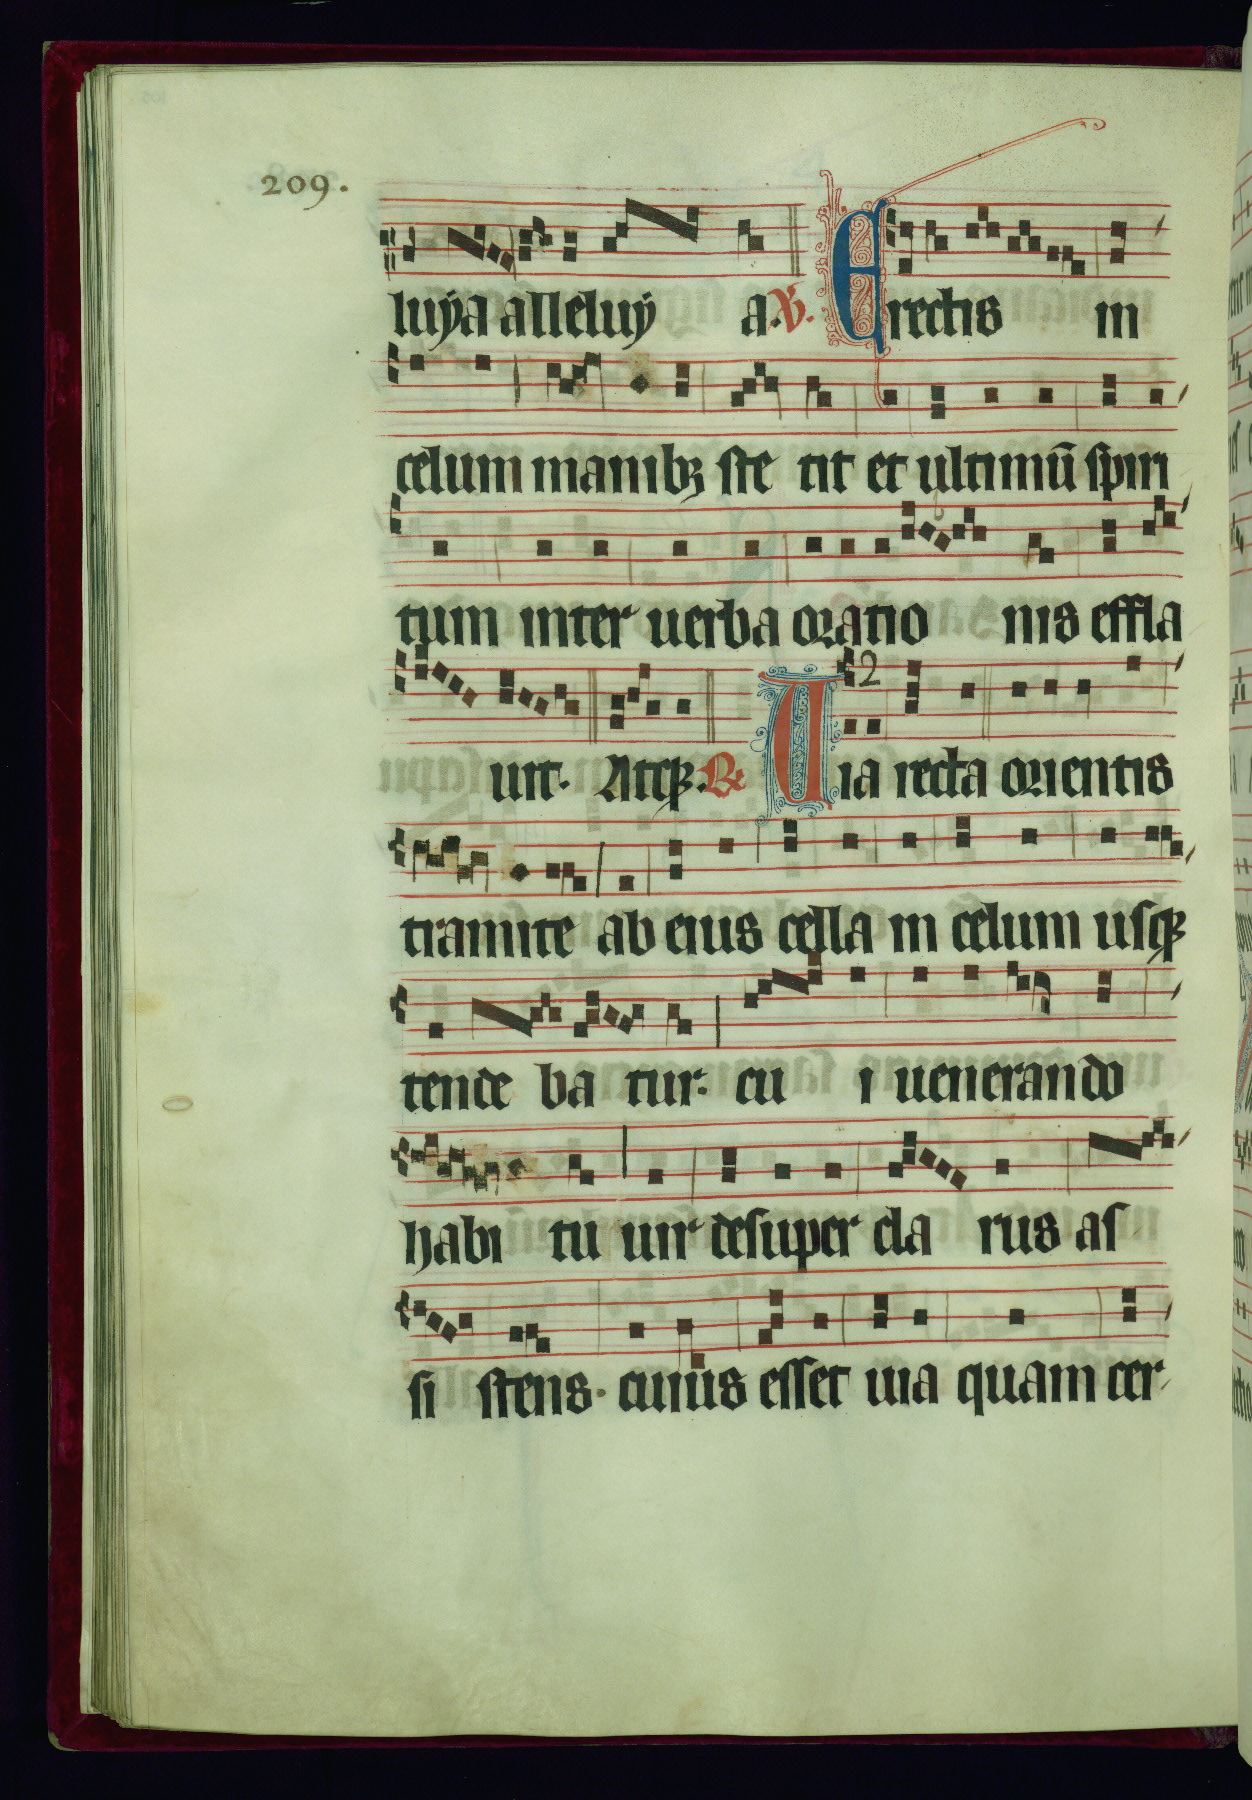 209.
luÿa alleluÿ a. V. Erectis in
celum manibꝫ ste tit et ultimū spiri
tum inter uerba oratio nis effla
2
uit. Atqꝫ. R Uia recta orientis
tramite ab eius cella in celum usqꝫ
tende ba tur. cu i uenerando
habi tu uir desuper cla rus as
si stens. cuius esset uia quam cer